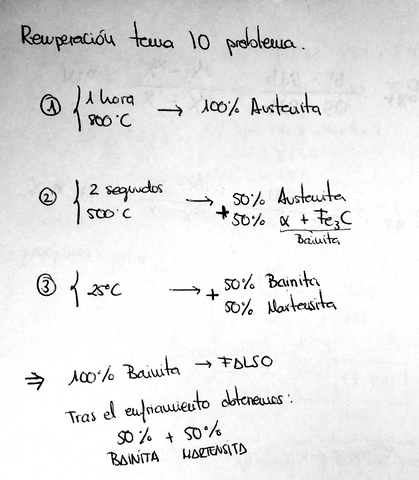 Recuperación tema 10 problema.
① { 1 hora
800°C → 100% Austenita
② { 2 segundos
500°C → 50% Austenita
+ 50% α + Fe3C
Bainita
③ { 25°C → + 50% Bainita
50% Martensita
⇒ 100% Bainita → FALSO
Tras el enfriamiento obtenemos:
50% + 50%
BAINITA MARTENSITA